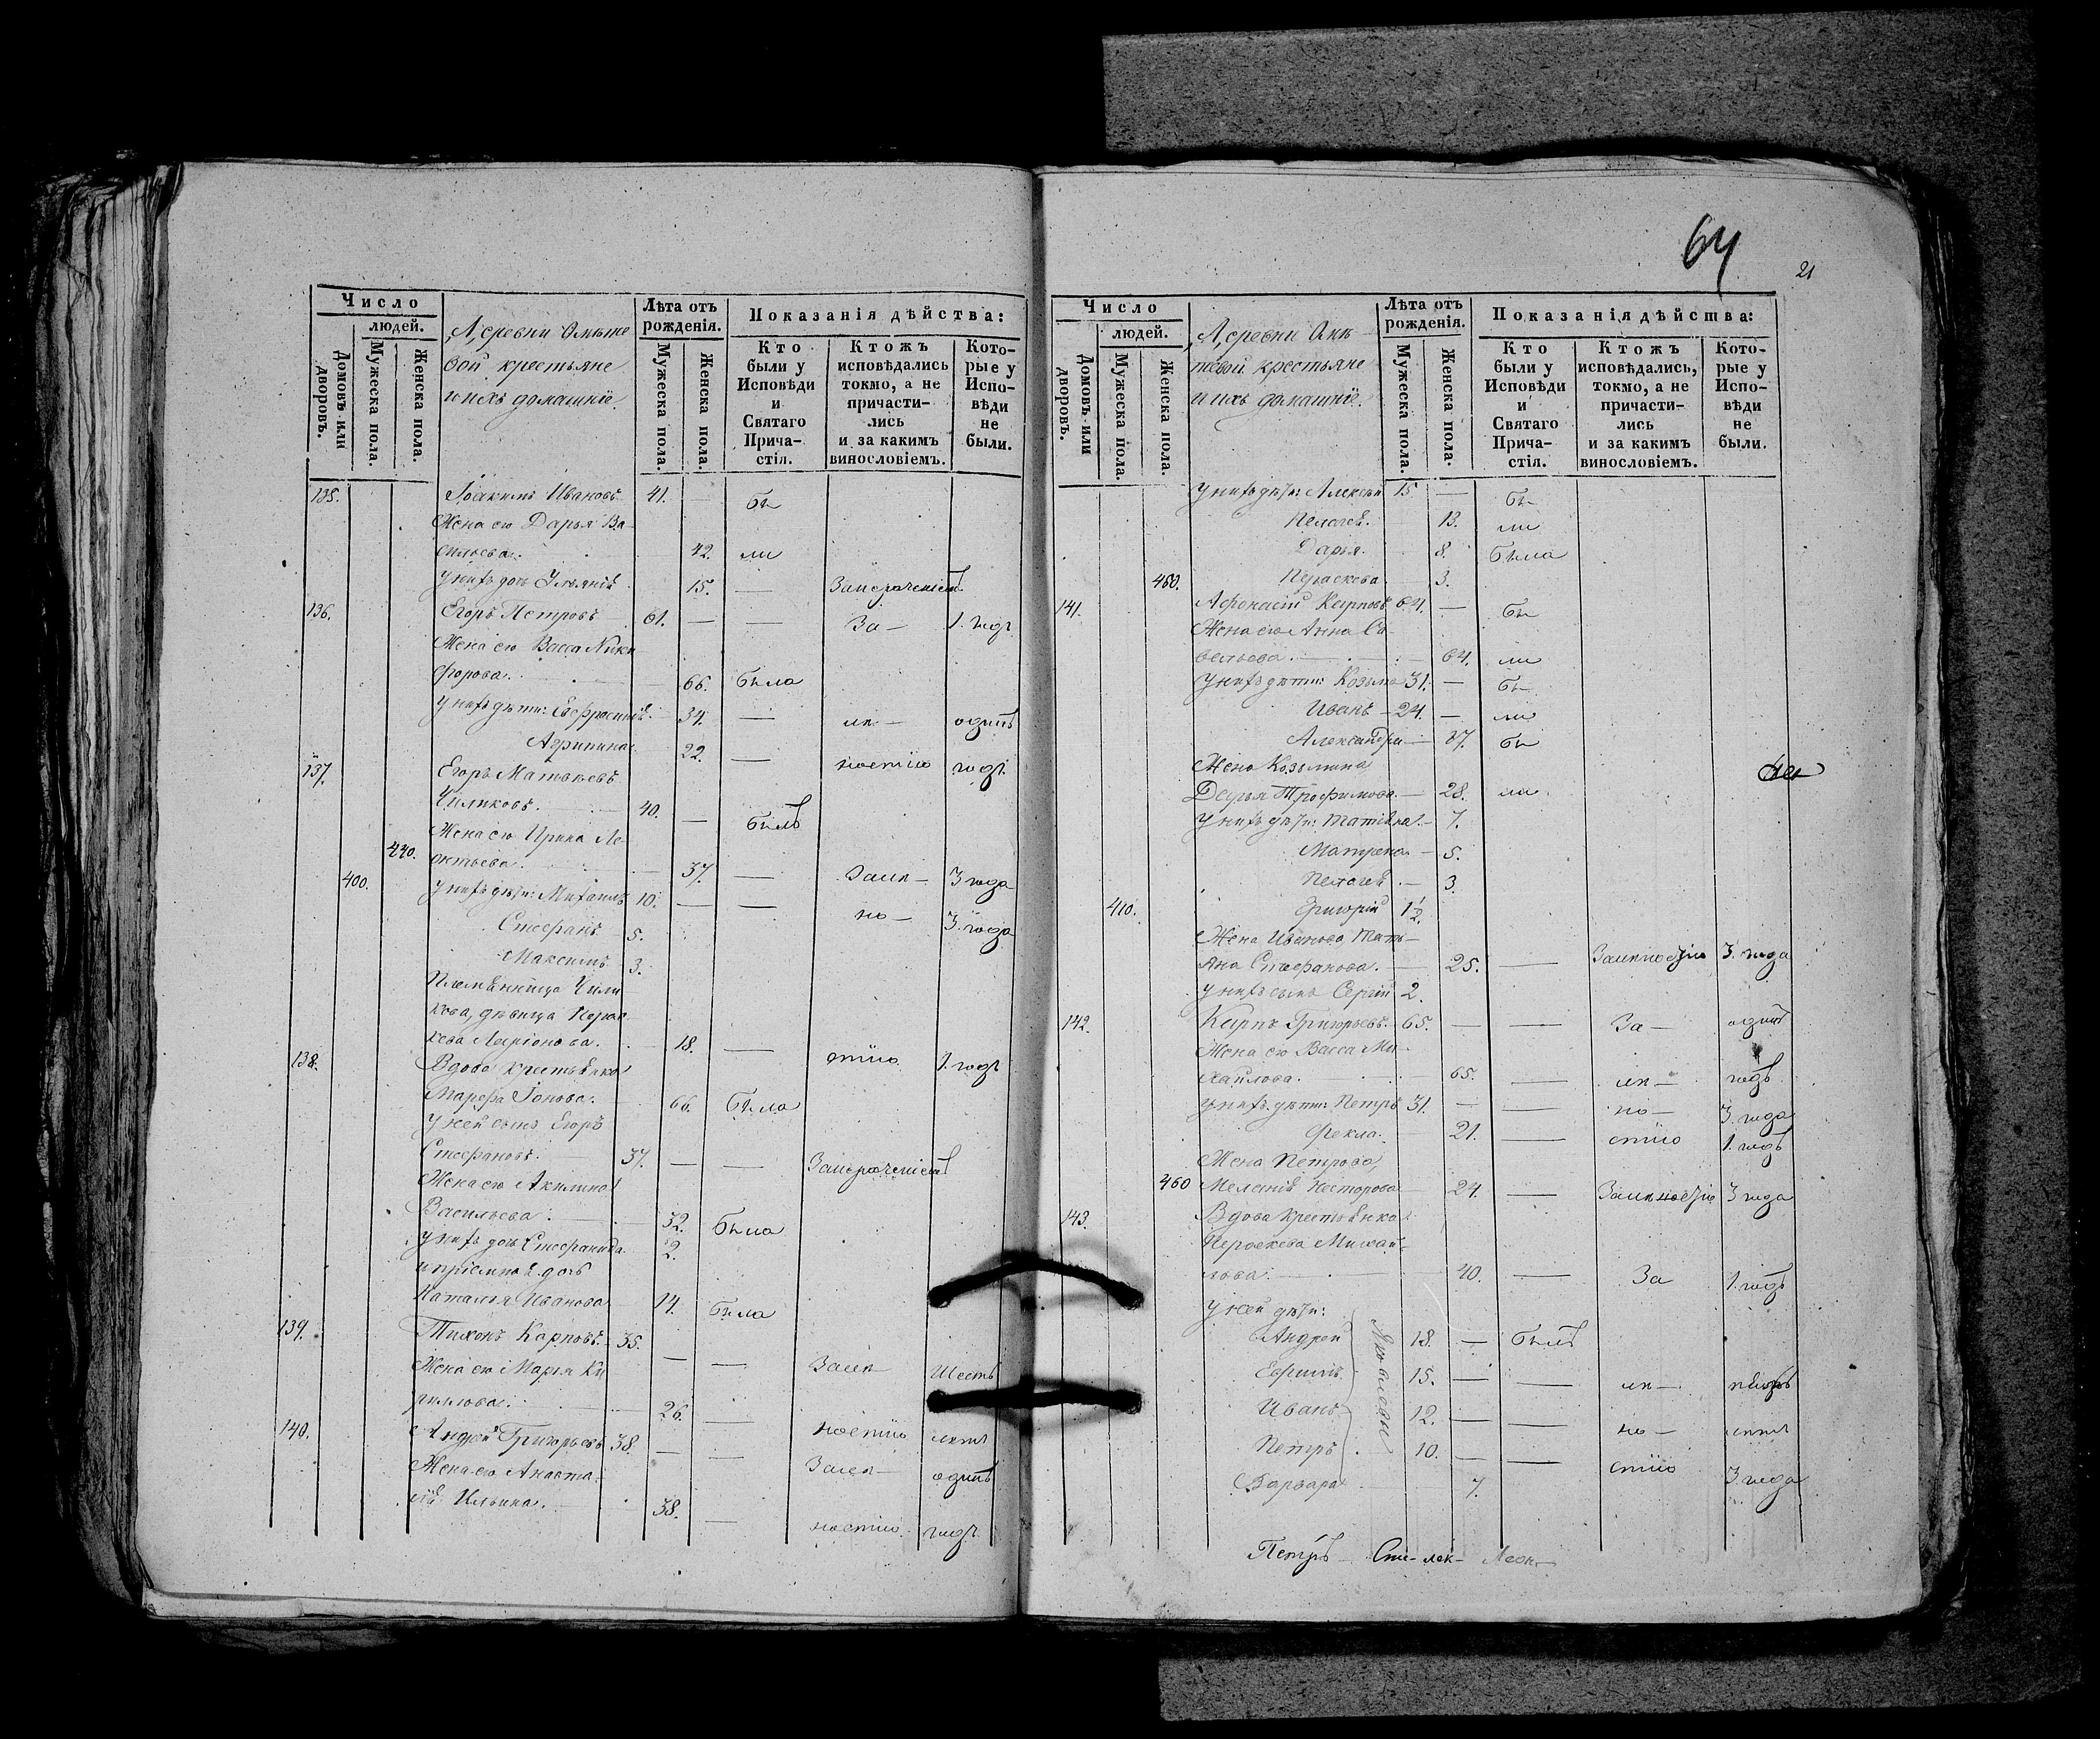 Число
людей.
Домовъ или дворовъ.
Мужеска пола.
Женска пола.
Деревни Омыте
вой крестьяне
и ихъ домашніе.
Лѣта отъ
рожденія.
Мужеска пола.
Женска пола.
Показанія дѣйства:
Кто
были у
Исповѣди
и
Святаго
Прича-
стія.
Ктожъ
исповѣдались
токмо, а не
причасти-
лись
и за какимъ
винословіемъ.
Кото-
рые у
Испо-
вѣди
не
были.
135. Іоакимъ Ивановъ 41. — бы
Жена его Дарья Ва-
сильева. 42. ли
У нихъ дочь 15. —
136. Егоръ Петровъ 61. — — За — 1. годъ
Жена его Васса Ники
форова. 66. была
У нихъ дѣти: Евфросинія. 34. — мл — одинъ
Агрипина 22. — ностію годъ.
137. Егоръ Матвѣевъ
Чиликовъ. 40. — былъ
Жена его Ирина Ле-
440. онтьева. 37. — Замл — 3 года
400. У нихъ дѣти: Михаилъ 10. — — но — 3. года
Стефанъ 5.
Максимъ 3.
Племянница Чили
кова, дѣвица Парас
кева Ларіонова. 18. — стію 1. годъ
138. Вдова крестьянка
Марфа Іонова. 66. была
У ней сынъ Егоръ
Стефановъ. 37. — —
Жена его Акилина
Васильева. 32. была
У нихъ дочь Стефанида 2.
и пріемная дочь
Наталья Иванова 14. была
139. Тихонъ Карповъ. 35. — — Замл — Шесть
Жена его Марья Ки
рилова. 26. — ностію лѣтъ
140. Андрей Григорьевъ 38. — — Замл — одинъ
Жена его Анаста-
сія Ильина. 38. — ностію. годъ
64
21
Число
людей.
Домовъ или дворовъ.
Мужеска пола.
Женска пола.
Деревни Омы
тевой крестьяне
и ихъ домашніе.
Лѣта отъ
рожденія.
Мужеска пола.
Женска пола.
Показанія дѣйства:
Кто
были у
Исповѣди
и
Святаго
Прича-
стія.
Ктожъ
исповѣдались,
токмо, а не
причасти-
лись
и за какимъ
винословіемъ.
Кото-
рые у
Испо-
вѣди
не
были.
У нихъ дѣти: Алексѣй 15 — бы
Пелагея. 13. ли
Дарья. 8. была
450. Параскева 3.
141. Афонасій Карповъ 64. — бы
Жена его Анна Са-
вельева. 64. ли
У нихъ дѣти: Козьма 31. — бы
Иванъ — 24. — ли
Александра — 17. бы
Жена Козьмина
Дарья Трофимова. — 28. ла
У нихъ дѣти: Татіяна — 7.
Матрена — 5.
Пелагея — 3.
410. Григорій 1 1/2.
Жена Иванова Тать-
яна Стефанова. — 25. — Замлностію 3. года
У нихъ сынъ Сергій 2.
142. Карпъ Григорьевъ. 65. — — За — одинъ
Жена его Васса Ми-
хайлова. 65. — мл — годъ
У нихъ дѣти: Петръ 31. — — но — 3. года
Фекла. 21. — стію 1. годъ
Жена Петрова,
460 Меланія Несторова 24. — Замлностію 3 года
143. Вдова крестьянка
Пароскева Михай-
лова. 40. — За 1. годъ
У ней дѣти:
Андрей 18. — былъ
Ефимъ 15. — — мл —
Иванъ 12. — — но — лѣтъ
Петръ 10. — — стію 3. года
Яковлевы
Варвара 7.
Петръ